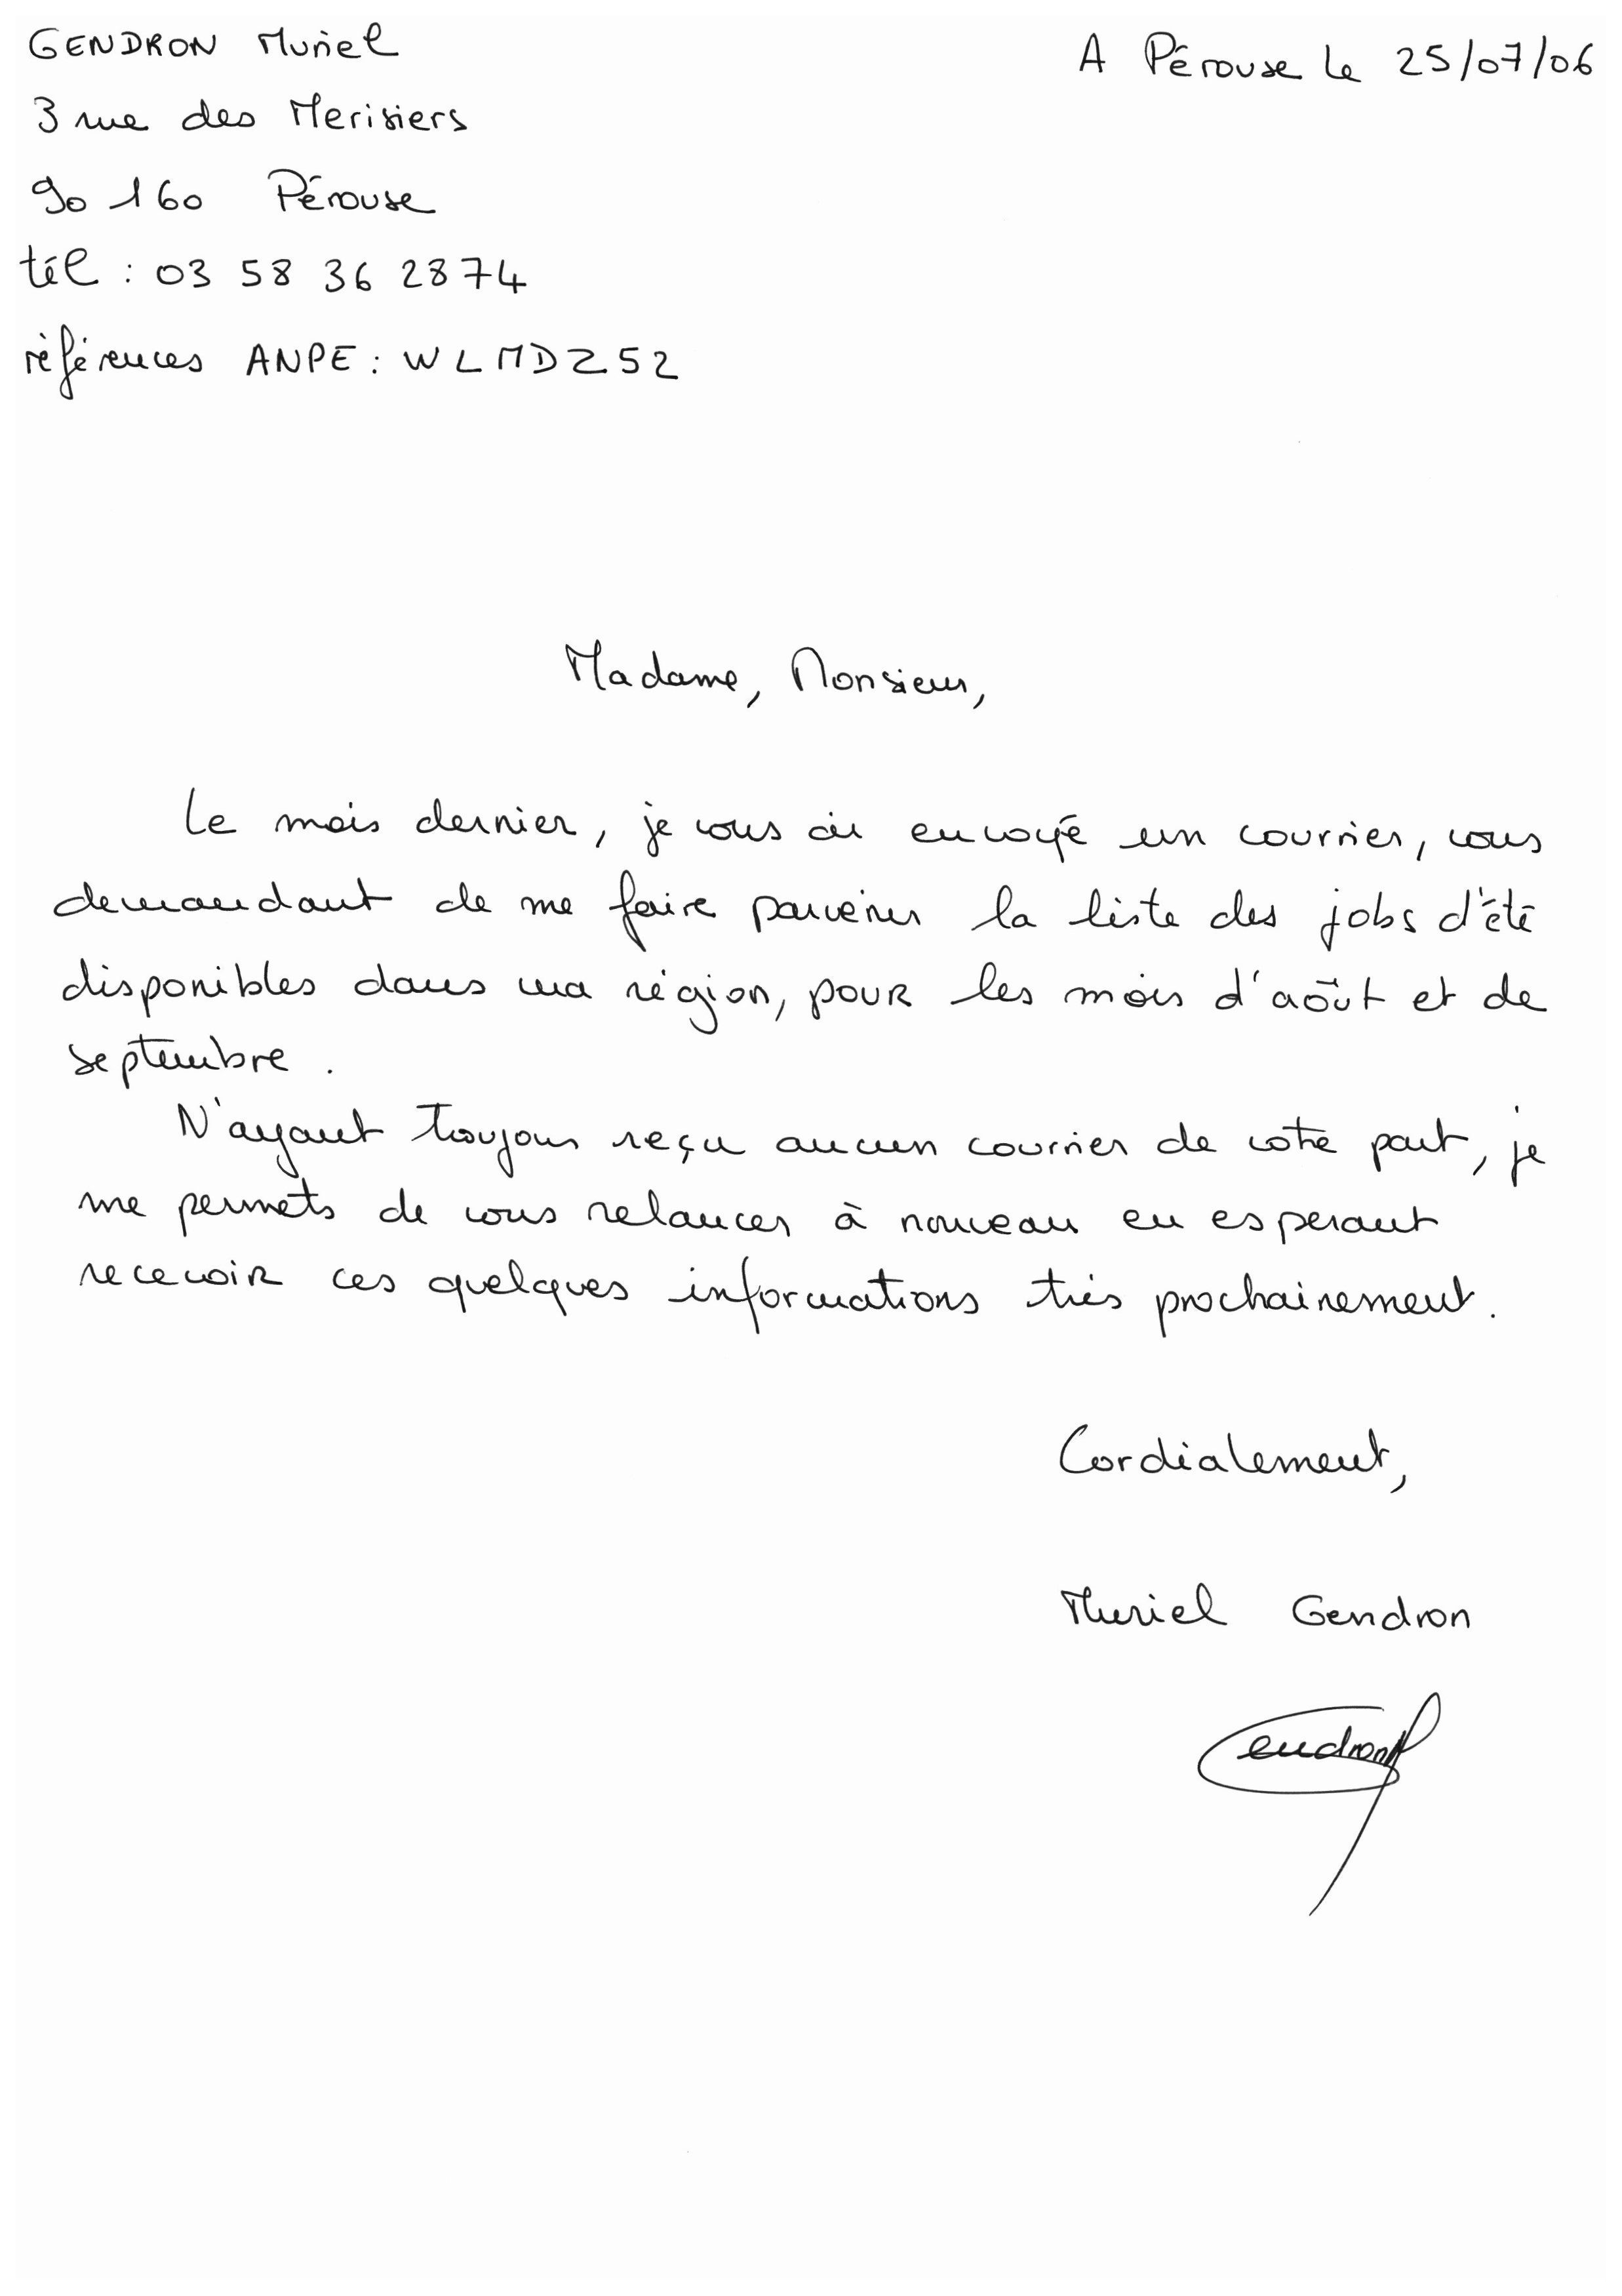 GENDRON Muriel
A Pérouse le 25/07/06
3 rue des Merisiers
90 160 Pérouse
tél : 03 58 36 28 74
références ANPE : WLMDZ52
Madame, Monsieur,
Le mois dernier, je vous ai envoyé un courrier, vous
demandant de me faire parvenir la liste des jobs d'été
disponibles dans ma région, pour les mois d'août et de
septembre.
N'ayant toujours reçu aucun courrier de votre part, je
me permets de vous relancer à nouveau en esperant
recevoir ces quelques informations très prochainement.
Cordialement,
Muriel Gendron
Gendron